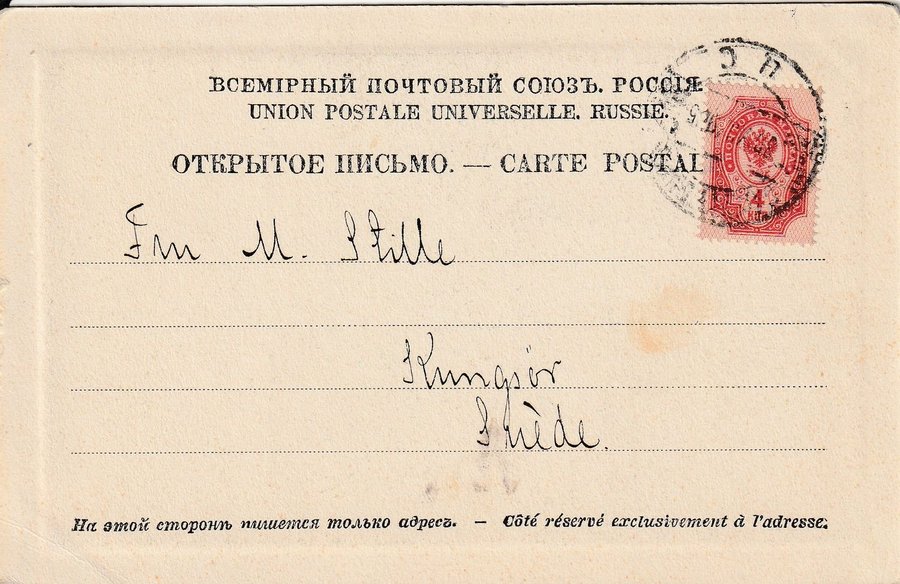 ВСЕМІРНЫЙ ПОЧТОВЫЙ СОЮЗЪ. РОССІЯ.
UNION POSTALE UNIVERSELLE. RUSSIE.
ОТКРЫТОЕ ПИСЬМО. — CARTE POSTAL
4
Fru M. Stille
Kungsör
Suède.
На этой сторонѣ пишется только адресъ. — Côté réservé exclusivement à l'adresse.